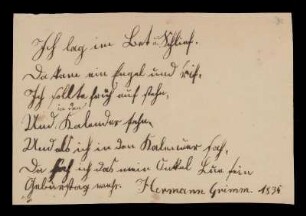 Ich lag im Bet und schlief.
Da kam ein Engel und rief,
Ich sollte früh auf stehn,
in den
Und Kalender sehn,
Und als ich in den Kalender sah,
Da sah ich das mein Onkel Luis sein
Geburtstag war. Hermann Grimm 18